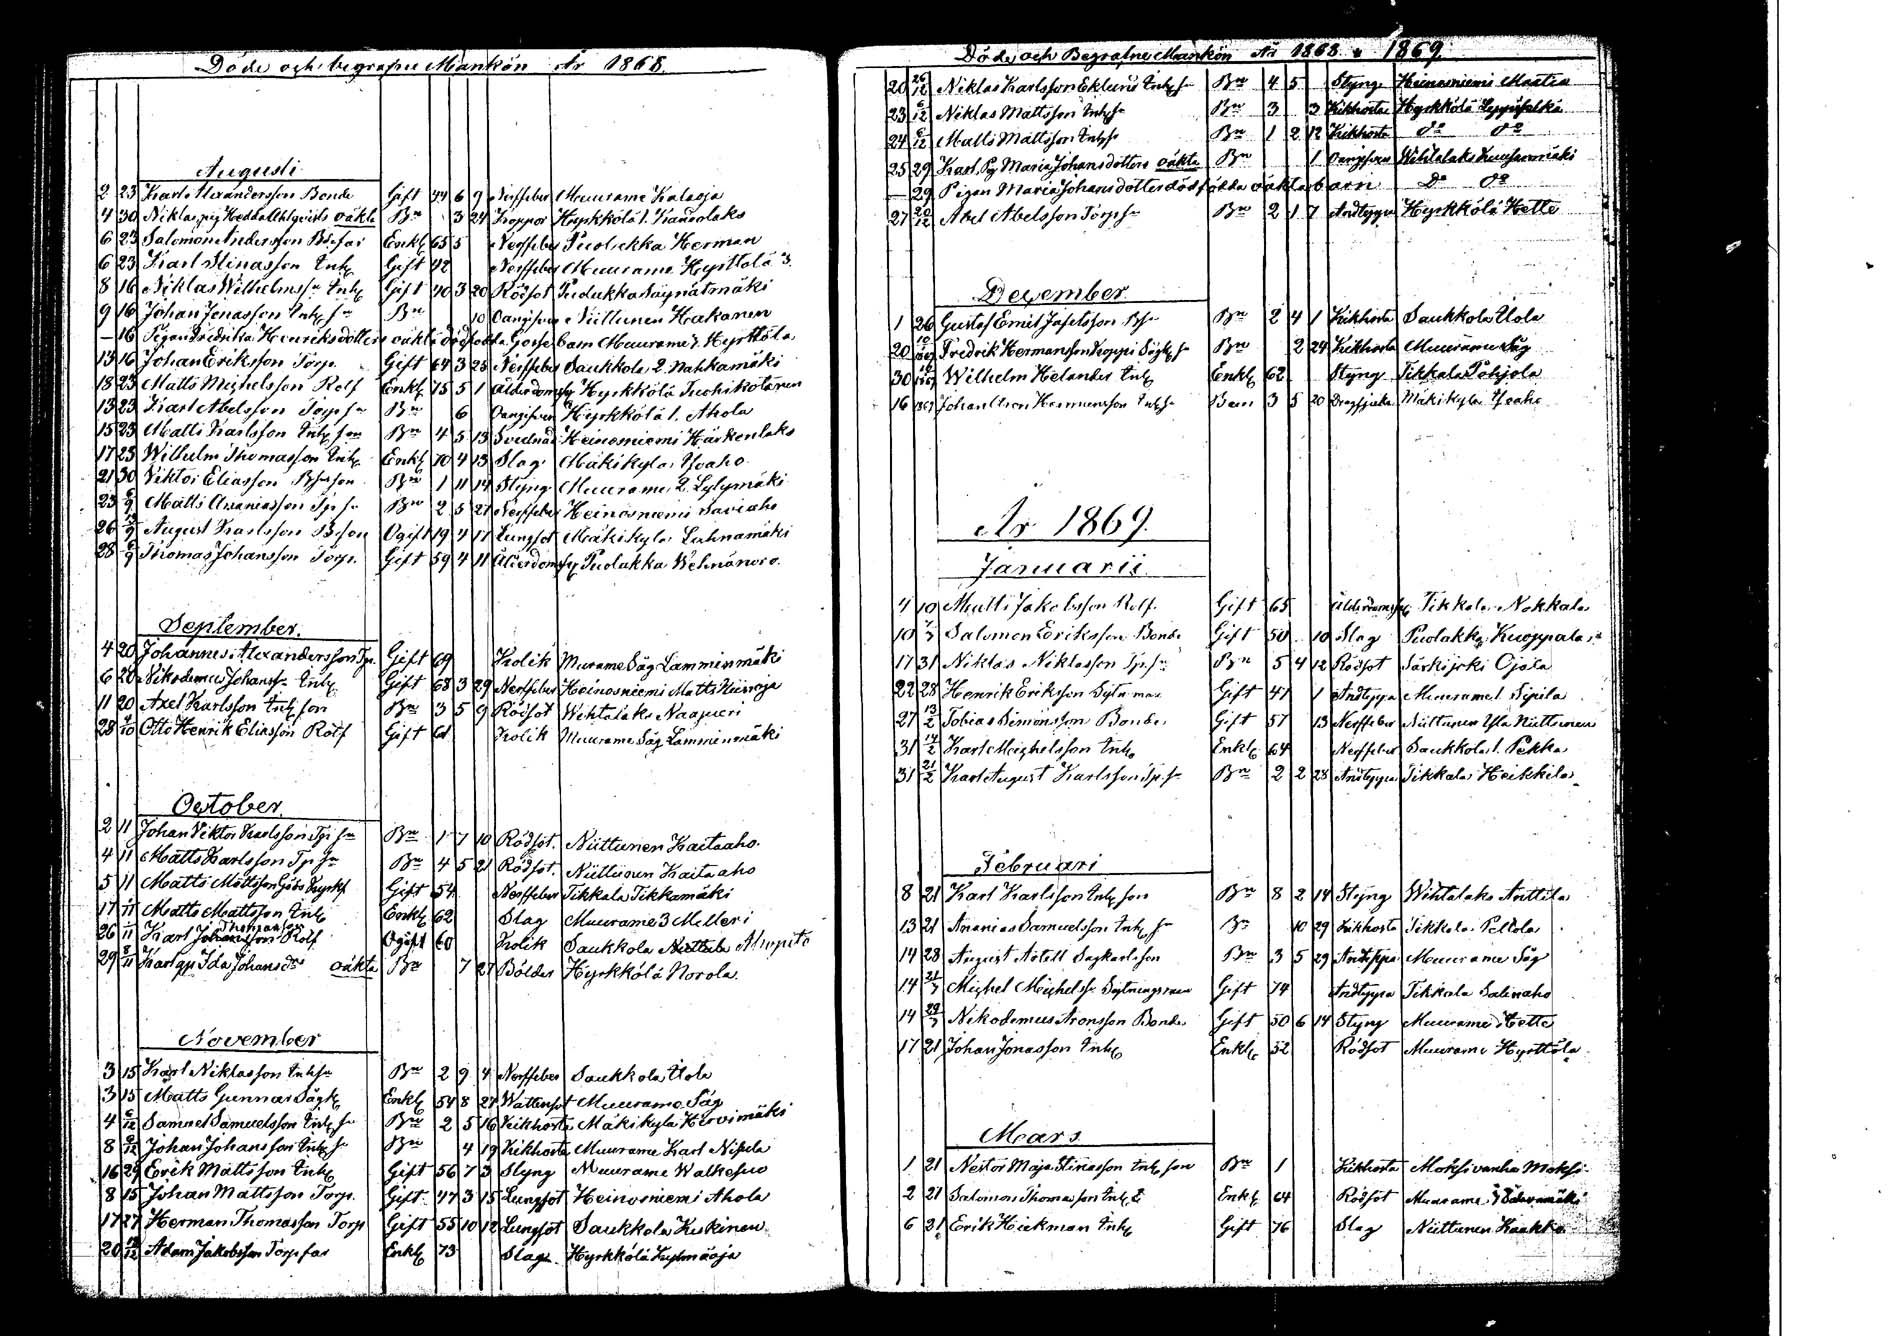 Döde och begrafne Mankön År 1868.
Augusti
2 23 Karl Alexandersson Bonde Gift 44 6 9 Nerffeber Muurame Kalaoja
4 30 Niklas, pig Hedda Ahlqvists oäkta Bn 3 24 Koppor Hyrkkölä 1. Kaurolaks
6 23 Salomon Andersson Bdefar Enkl 65 5 Nerffeber Puolukka Herman
6 23 Karl Stinasson Inh Gift 42 Nerffeber Muurame Hyrttölä 3.
8 16 Niklas Wilhelmss Inh Gift 40 3 20 Rödsot Puolukka Säynätmäki
9 16 Johan Jonasson Inh sn Bn 10 Oangifven Niittunen Hakanen
— 16 Pigan Fredrika Henriksdotters oäkta dödfödda Gosse barn Muurame 2. Hyrttölä
13 16 Johan Eriksson Torp. Gift 64 3 25 Nerffeber Saukkola 2. Nahkamäki
18 23 Matts Michelsson Rolf Enkl 75 5 1 Ålderdomsbr Hyrkkölä Tuohikotanen
13 23 Karl Abelsson Torp sn Bn 6 Oangifven Hyrkkölä 1. Ahola
15 23 Matti Karlsson Inh son Bn 4 5 13 Svulnad Heinosniemi Härkenlaks
17 23 Wilhelm Thomasson Inh Enkl 70 4 13 Slag Mäkikylä Yoaho
21 30 Viktor Eliasson Bdeson Bn 1 11 14 Styng Muurame 2 Lylymäki
23 6/9 Matts Ananiasson Tp sn Bn 2 5 27 Nerffeber Heinosniemi Saviaho
26 13/9 August Karlsson Bson Ogift 19 4 17 Lungsot Mäkikylä Lahnamäki
28 6/9 Thomas Johansson Torp. Gift 59 4 11 Ålderdomsbr Puolakka Wehnänoro.
September.
4 20 Johannes Alexandersson Tp. Gift 69 Kolik Muurame Såg Lamminmäki
6 20 Nikodemus Johanss Inh Gift 68 3 29 Nerffeber Heinosniemi Matts Kiiveoja
11 20 Axel Karlsson Inh son Bn 3 5 9 Rödsot Wihtalaks Naapuri
28 4/10 Otto Henrik Eliasson Rolf Gift 61 Kolik Muurame Såg Lamminmäki
October.
2 11 Johan Viktor Karlsson Tp sn Bn 1 7 10 Rödsot. Niittunen Kaitaaho.
4 11 Matts Karlsson Tp sn Bn 4 5 21 Rödsot. Niittunen Kaitaaho
5 11 Matts Mattsson Gift 54 Nerffeber Tikkala Tikkamäki
17 1/11 Matts Mattsson Inh Enkl 62 Slag Muurame 3 Melleri
26 1/11 Karl Johansson Thomasson Rolf Ogift 60 Kolik Saukkola Ahopelto
29 8/11 Karl pp Ida Johansdrs oäkta Bn 7 27 Bölder Hyrkkölä Norola
November
3 15 Karl Niklasson Inh sn Bn 2 9 4 Nerffeber Saukkola Uola
3 15 Matts Gunnar Sågk Enkl 54 8 27 Wattensot Muurame Såg
4 6/12 Samuel Samuelsson Inh sn Bn 2 5 16 Kikhosta Mäkikylä Hirvimäki
8 6/12 Johan Johansson Inh sn Bn 4 19 Kikhosta Muurame Karl Nisula
16 29 Erik Mattsson Inh Gift 56 7 3 Styng Muurame Walkesuo
8 15 Johan Mattsson Torp. Gift 47 3 15 Lungsot Heinosniemi Ahola
17 27 Herman Thomasson Torp Gift 55 10 12 Lungsot Saukkola Keskinen
20 13/12 Adam Jakobsson Torp far Enkl 73 Slag Hyrkkölä Kylmäoja
Döde och Begrafne Mankön År 1868 o 1869.
20 26/12 Niklas Karlsson Eklund Inh sn Bn 4 5 Styng Heinosniemi Mattila
23 6/12 Niklas Mattsson Inh sn Bn 3 3 Kikhosta Hyrkkölä Leppäselkä
24 6/12 Matts Mattsson Inh sn Bn 1 2 12 Kikhosta do do
25 29 Karl, Pg Maria Johansdotters oäkta Bn 1 Oangifven Wihtalaks Kuusanmäki
— 29 Pigan Maria Johansdotters dödfödda oäkta barn Do do
27 20/12 Abel Abelsson Torp sn Bn 2 1 7 Andteppa Hyrkkölä Hette
December
1 26 Gustaf Emil Jafetsson Bsn Bn 2 4 1 Kikhosta Saukkola Uola
20 10/1869 Fredrik Hermansson Koppi Sågk sn Bn 2 24 Kikhosta Muurame Såg
30 10/1869 Wilhelm Helander Inh Enkl 62 Styng Tikkala Pohjola
16 1869 Johan Aron Hermansson Inh sn Barn 3 5 20 Dragsjuka Mäkikylä Yoaho
År 1869.
Januarii
4 10 Matti Jakobsson Rolf. Gift 65 Ålderdomsbr Tikkala Nokkala
10 7/3 Salomon Eriksson Bonde Gift 50 10 Slag Puolakka Kuoppala
17 31 Niklas Niklasson Tp. sn Bn 5 4 12 Rödsot Särkijoki Ojala
22 28 Henrik Eriksson Sytn. man Gift 47 1 Andteppa Muurame 1 Sipila
27 13/2 Tobias Simonsson Bonde Gift 57 13 Nerffeber Niittunen Yla Niittunen
31 14/2 Karl Michelsson Inh Enkl 64 Nerffeber Saukkola 1. Pekka
31 21/2 Karl August Karlsson Tp. sn Bn 2 2 28 Andteppa Tikkala Heikkila
Februari
8 21 Karl Karlsson Inh son Bn 8 2 14 Styng Wihtalaks Anttila
13 21 Ananias Samuelsson Inh sn Bn 10 29 Kikhosta Tikkala Peltola
14 28 August Axell Sagkarlsson Bn 3 5 29 Andteppa Muurame Såg
14 21/3 Michel Michelss Sytningsman Gift 74 Andteppa Tikkala Salinaho
14 29/3 Nikodemus Aronsson Bonde Gift 50 6 14 Styng Muurame Hette
17 21 Johan Jonasson Inh Enkl 52 Rödsot Muurame Hyrttölä
Mars
1 21 Nestor Maja Stinasson Inh son Bn 1 Kikhosta Moksi vanha Moksi
2 21 Salomon Thomasson Inh Enkl 64 Rödsot Muurame
6 21 Erik Hickman Inh Gift 76 Slag Niittunen Kaakko